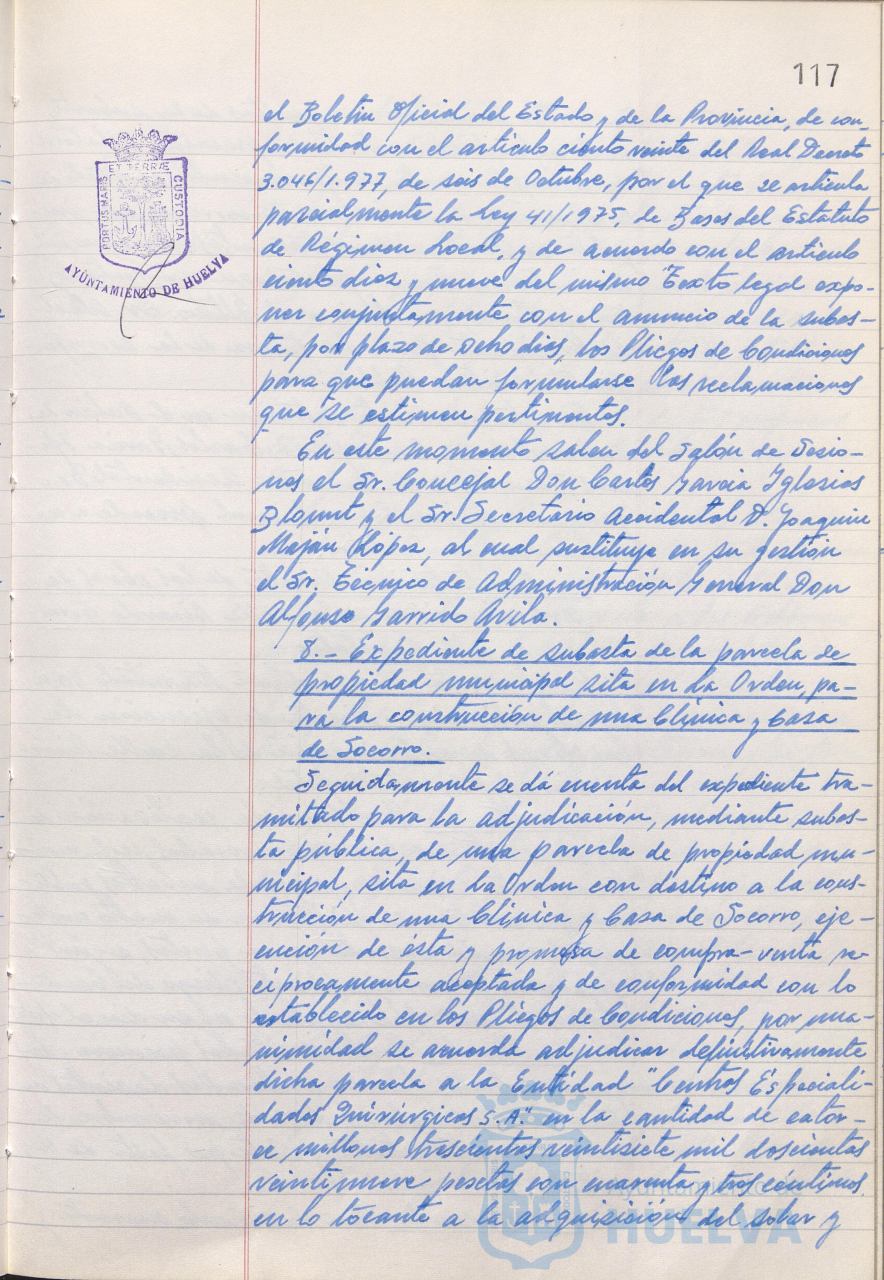 117
PORTUS MARIS ET TERRÆ CUSTODIA
AYUNTAMIENTO DE HUELVA
el Boletin Oficial del Estado y de la Provincia, de con-
formidad con el artículo ciento veinte del Real Decreto
3.046/1.977, de seis de Octubre, por el que se articula
parcialmente la Ley 41/1975, de Bases del Estatuto
de Régimen Local, y de acuerdo con el artículo
ciento diez y nueve del mismo Texto legal expo-
ner conjuntamente con el anuncio de la subas-
ta, por plazo de ocho dias, los Pliegos de Condiciones
para que puedan formularse las reclamaciones
que se estimen pertinentes.
En este momento salen del Salón de Sesio-
nes el Sr. Concejal Don Carlos Garcia Iglesias
Blount y el Sr. Secretario Accidental D. Joaquin
Maján López, al cual sustituye en su gestión
el Sr. Técnico de Administración General Don
Alfonso Garrido Avila.
8.- Expediente de subasta de la parcela de
propiedad municipal sita en La Orden, pa-
ra la construcción de una Clínica y Casa
de Socorro.
Seguidamente se dá cuenta del expediente tra-
mitado para la adjudicación, mediante subas-
ta pública, de una parcela de propiedad mu-
nicipal, sita en La Orden con destino a la cons-
trucción de una Clínica y Casa de Socorro, eje-
cución de ésta y promesa de compra-venta re-
ciprocamente aceptada y de conformidad con lo
establecido en los Pliegos de Condiciones, por una-
nimidad se acuerda adjudicar definitivamente
dicha parcela a la Entidad "Centros Especiali-
dades Quirúrgicas S.A." en la cantidad de cator-
ce millones trescientas veintisiete mil doscientas
veintinueve pesetas con cuarenta y tres céntimos.
en lo tocante a la adquisición del solar y
Ayuntamiento de
HUELVA